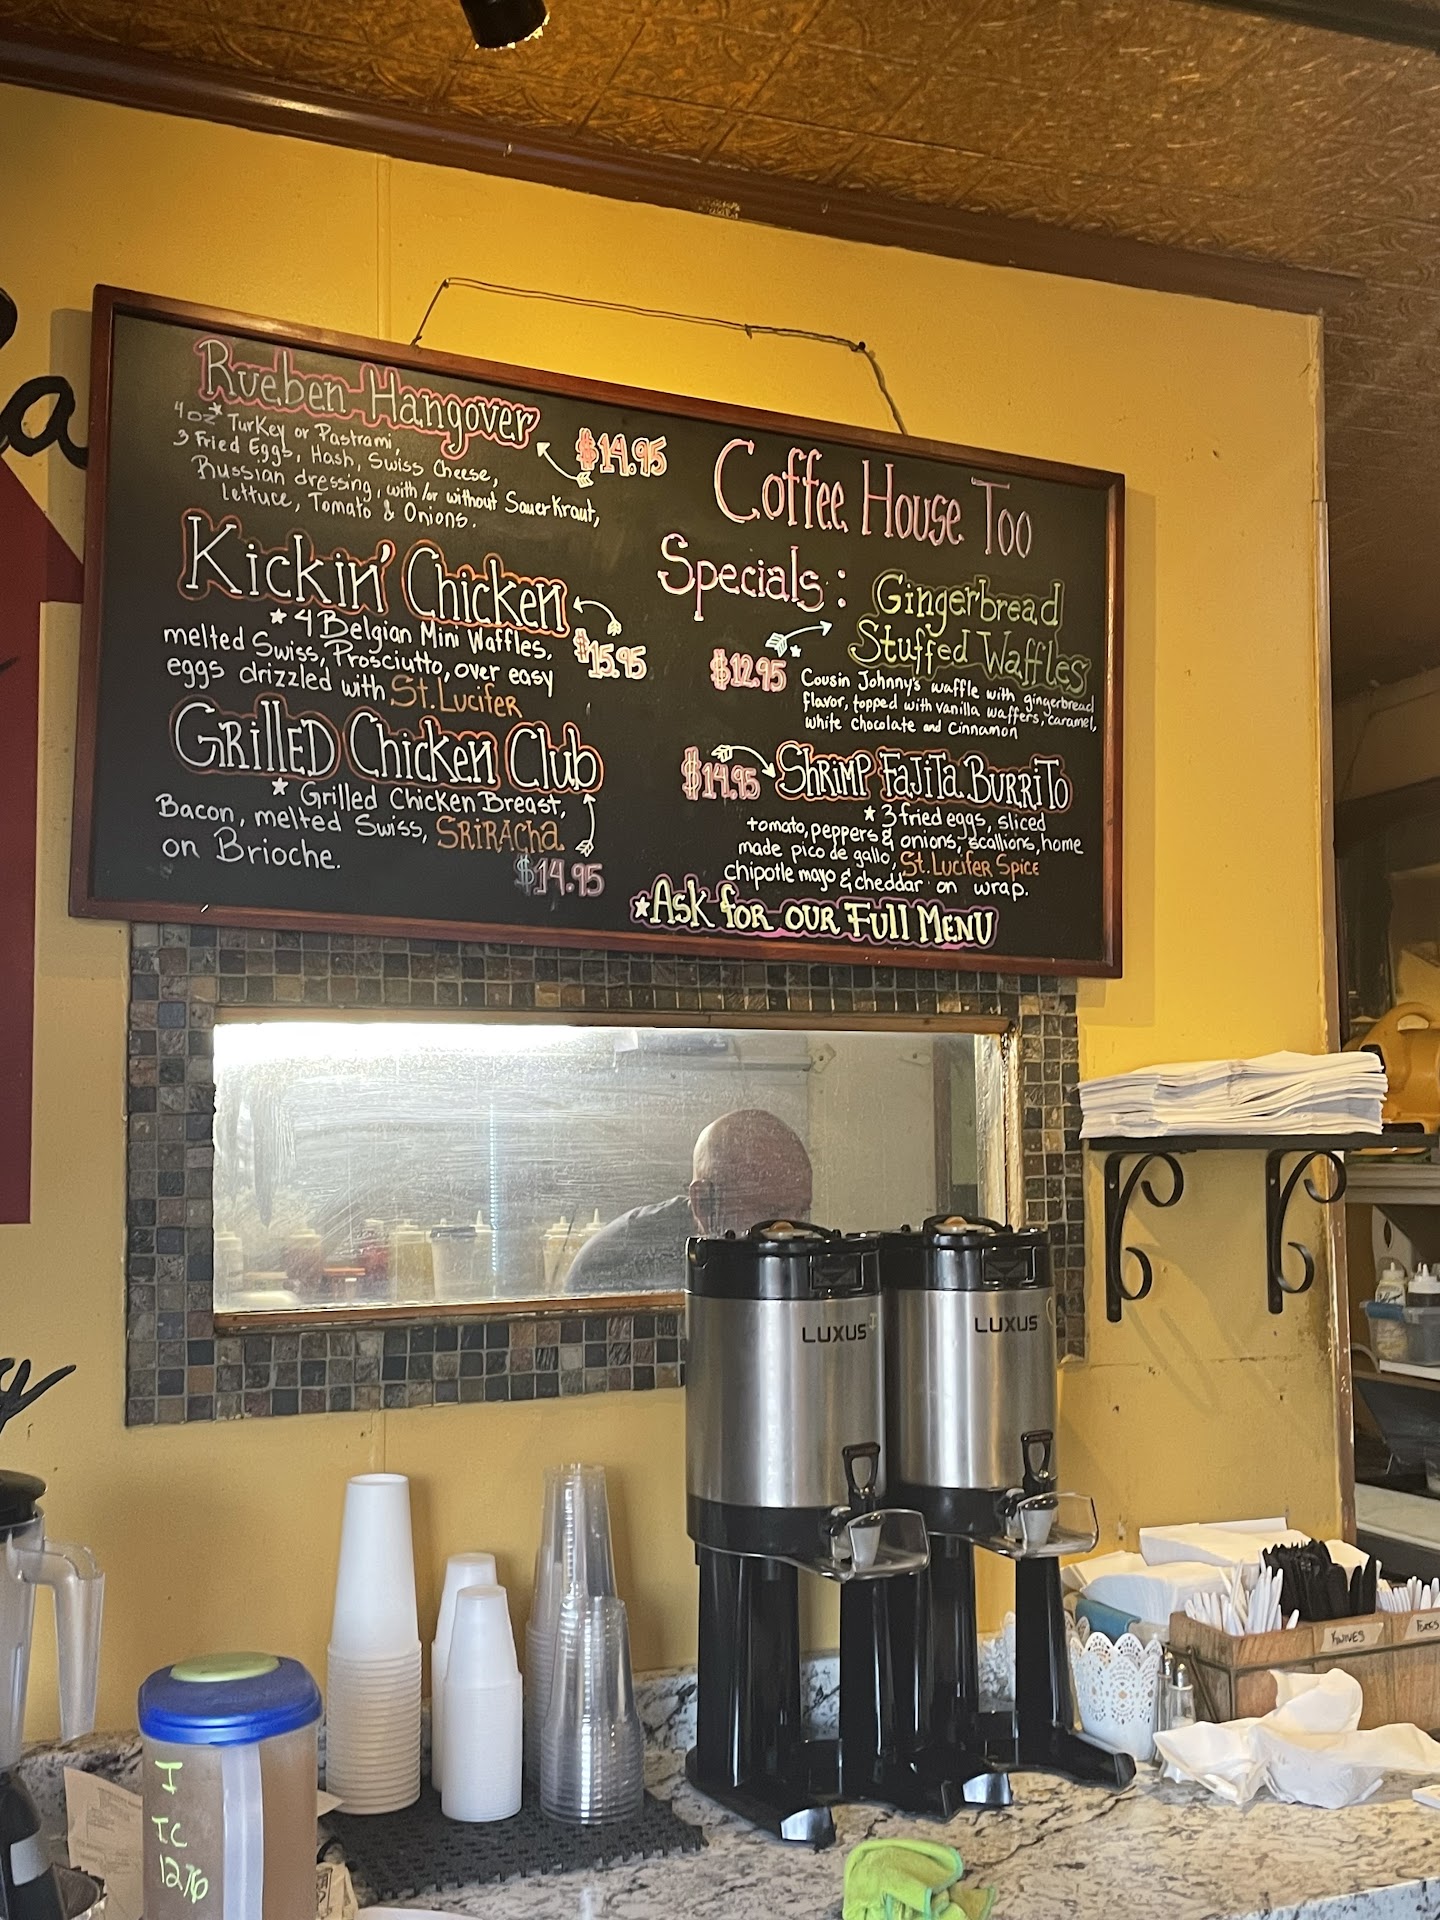 Rueben Hangover
$14.95
4oz* Turkey or Pastrami,
3 Fried Eggs, Hash, Swiss Cheese,
Russian dressing, with/or without SauerKraut,
Lettuce, Tomato & Onions.
Kickin' Chicken
$15.95
* 4 Belgian Mini Waffles,
melted Swiss, Prosciutto, over easy
eggs drizzled with St. Lucifer
Grilled Chicken Club
* Grilled Chicken Breast,
Bacon, melted Swiss, Sriracha
on Brioche.
$14.95
Coffee House Too
Specials:
Gingerbread
Stuffed Waffles
$12.95
Cousin Johnny's waffle with gingerbread
flavor, topped with vanilla waffers, caramel,
white chocolate and cinnamon
$14.95
Shrimp Fajita Burrito
* 3 fried eggs, sliced
tomato, peppers & onions, scallions, home
made pico de gallo, St. Lucifer Spice
chipotle mayo & cheddar on wrap.
*Ask for our Full Menu
LUXUS
LUXUS
KNIVES
FORKS
I
TC
1276